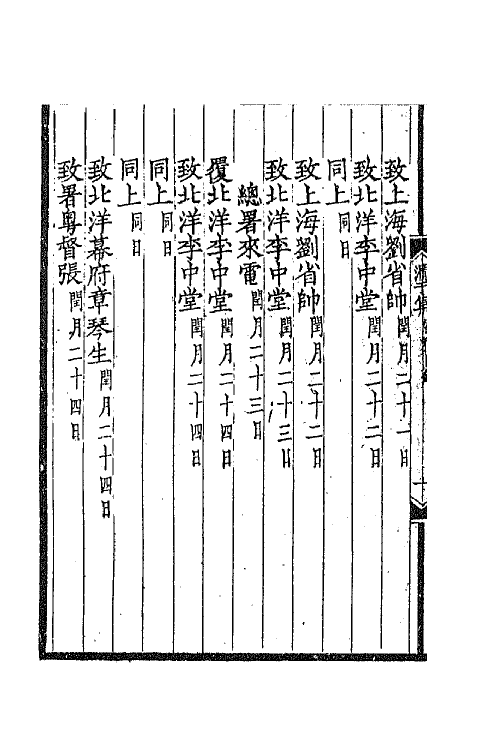 致上海劉省帥閏月二十一日
致北洋李中堂閏月二十二日
同上同日
致上海劉省帥閏月二十二日
致北洋李中堂閏月二十三日
總署來電閏月二十三日
覆北洋李中堂閏月二十四日
致北洋李中堂閏月二十四日
同上同日
同上同日
致北洋幕府章琴生閏月二十四日
致署粵督張閏月二十四日